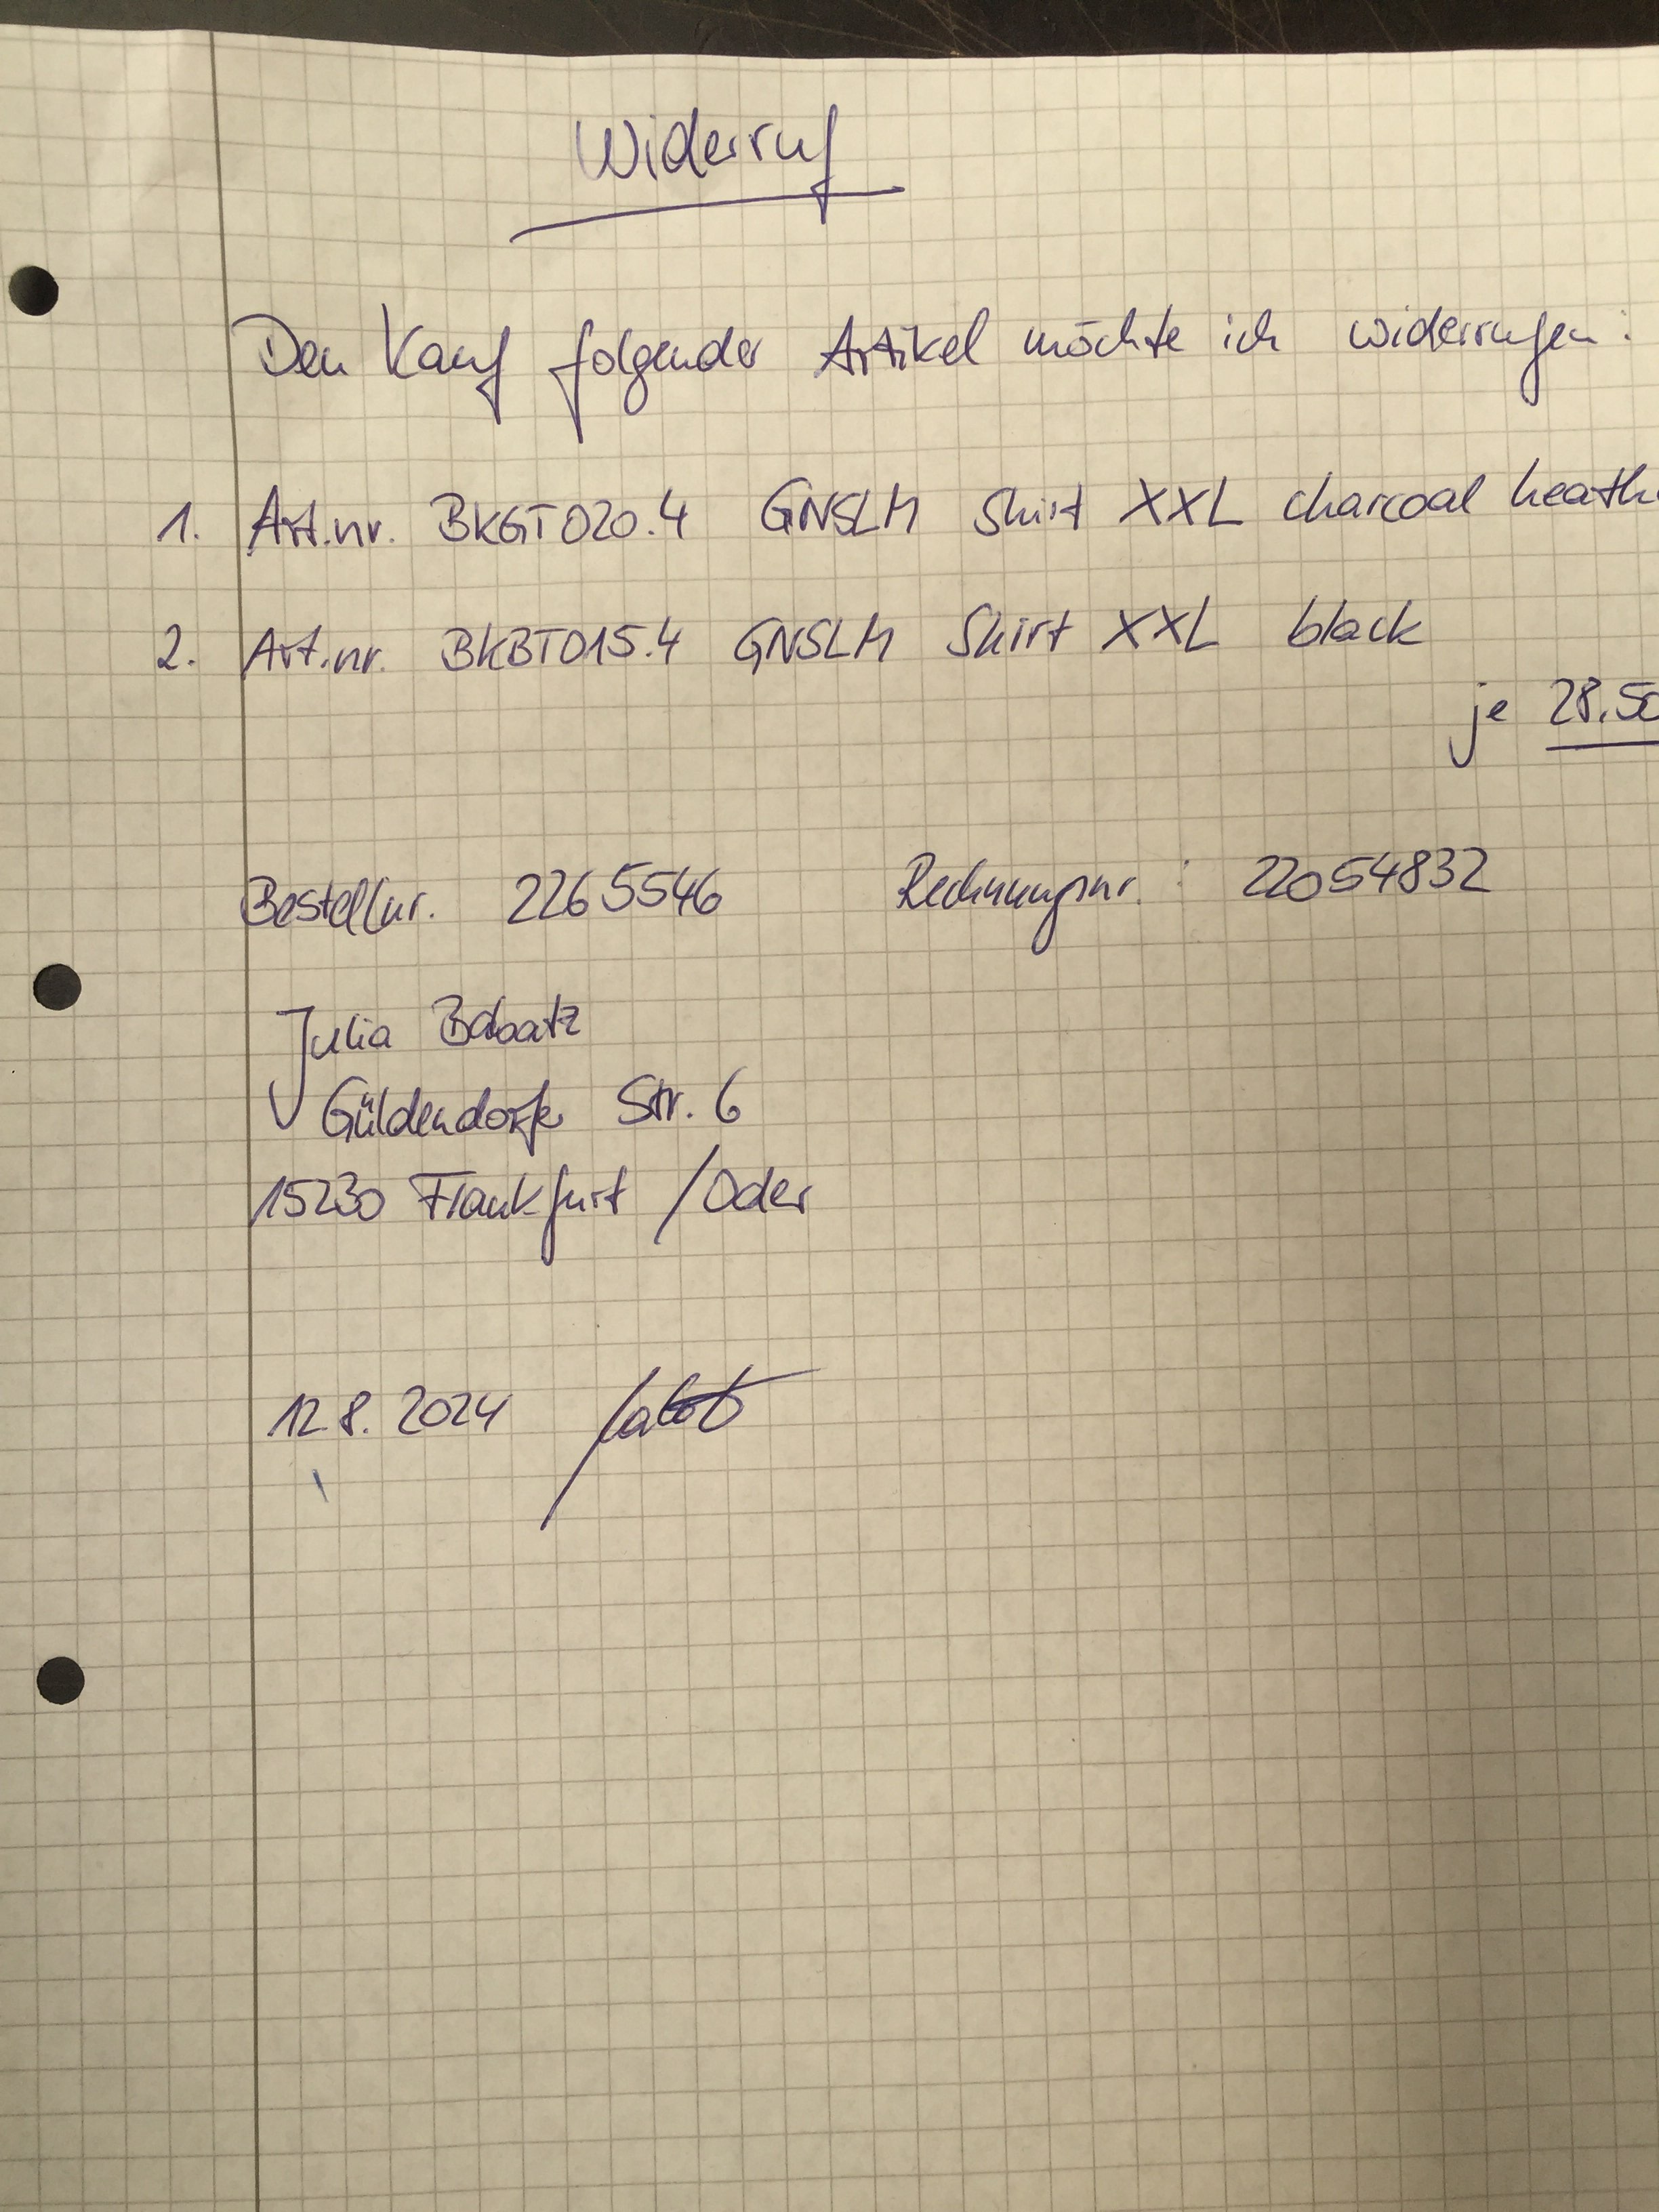 Widerruf
Den Kauf folgender Artikel möchte ich widerrufen:
1. Art.nr. BKGT020.4 GNSLM Shirt XXL charcoal heath
2. Art.nr. BKBT015.4 GNSLM Shirt XXL black
je 28.50
Bestellnr. 2265546 Rechnungsnr.: 22054832
Julia
Güldendorfer Str. 6
15230 Frankfurt /Oder
12.8.2024